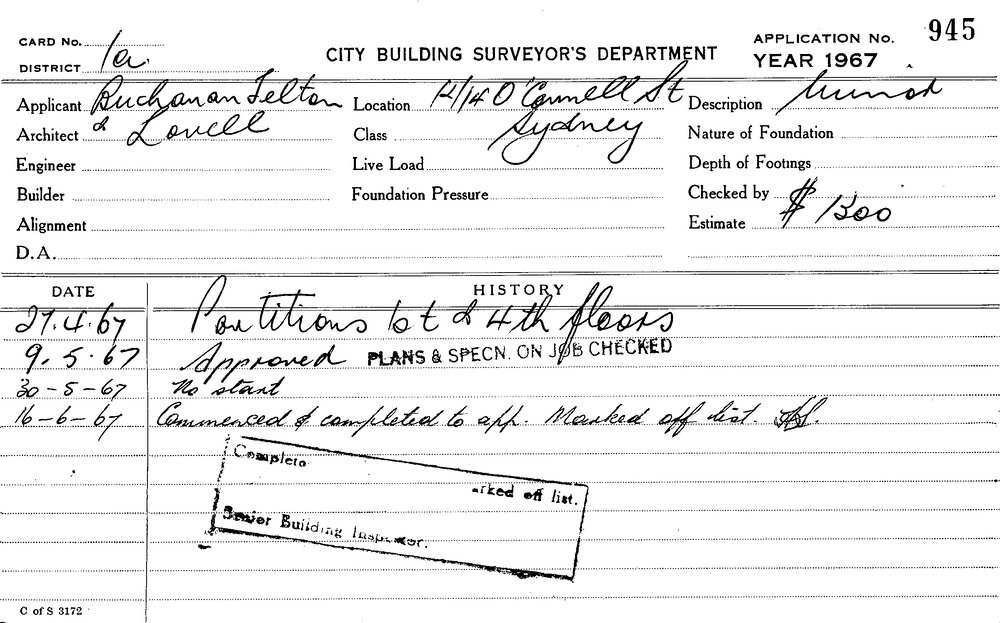 CARD No.
DISTRICT 1a.
CITY BUILDING SURVEYOR'S DEPARTMENT
APPLICATION No. 945
YEAR 1967
Applicant Buchanan Felton
Architect & Lovell
Engineer
Builder
Alignment
D.A.
Location 12/14 O'Connell St
Class Sydney
Live Load
Foundation Pressure
Description
Nature of Foundation
Depth of Footings
Checked by
Estimate $ 1300
DATE HISTORY
27.4.67 Partitions 1st & 4th floors
9.5.67 Approved PLANS & SPECN. ON JOB CHECKED
30-5-67 No start
16-6-67 Commenced & completed to app. Marked off list.
Complete
arked off list.
Senior Building Inspector.
C of S 3172